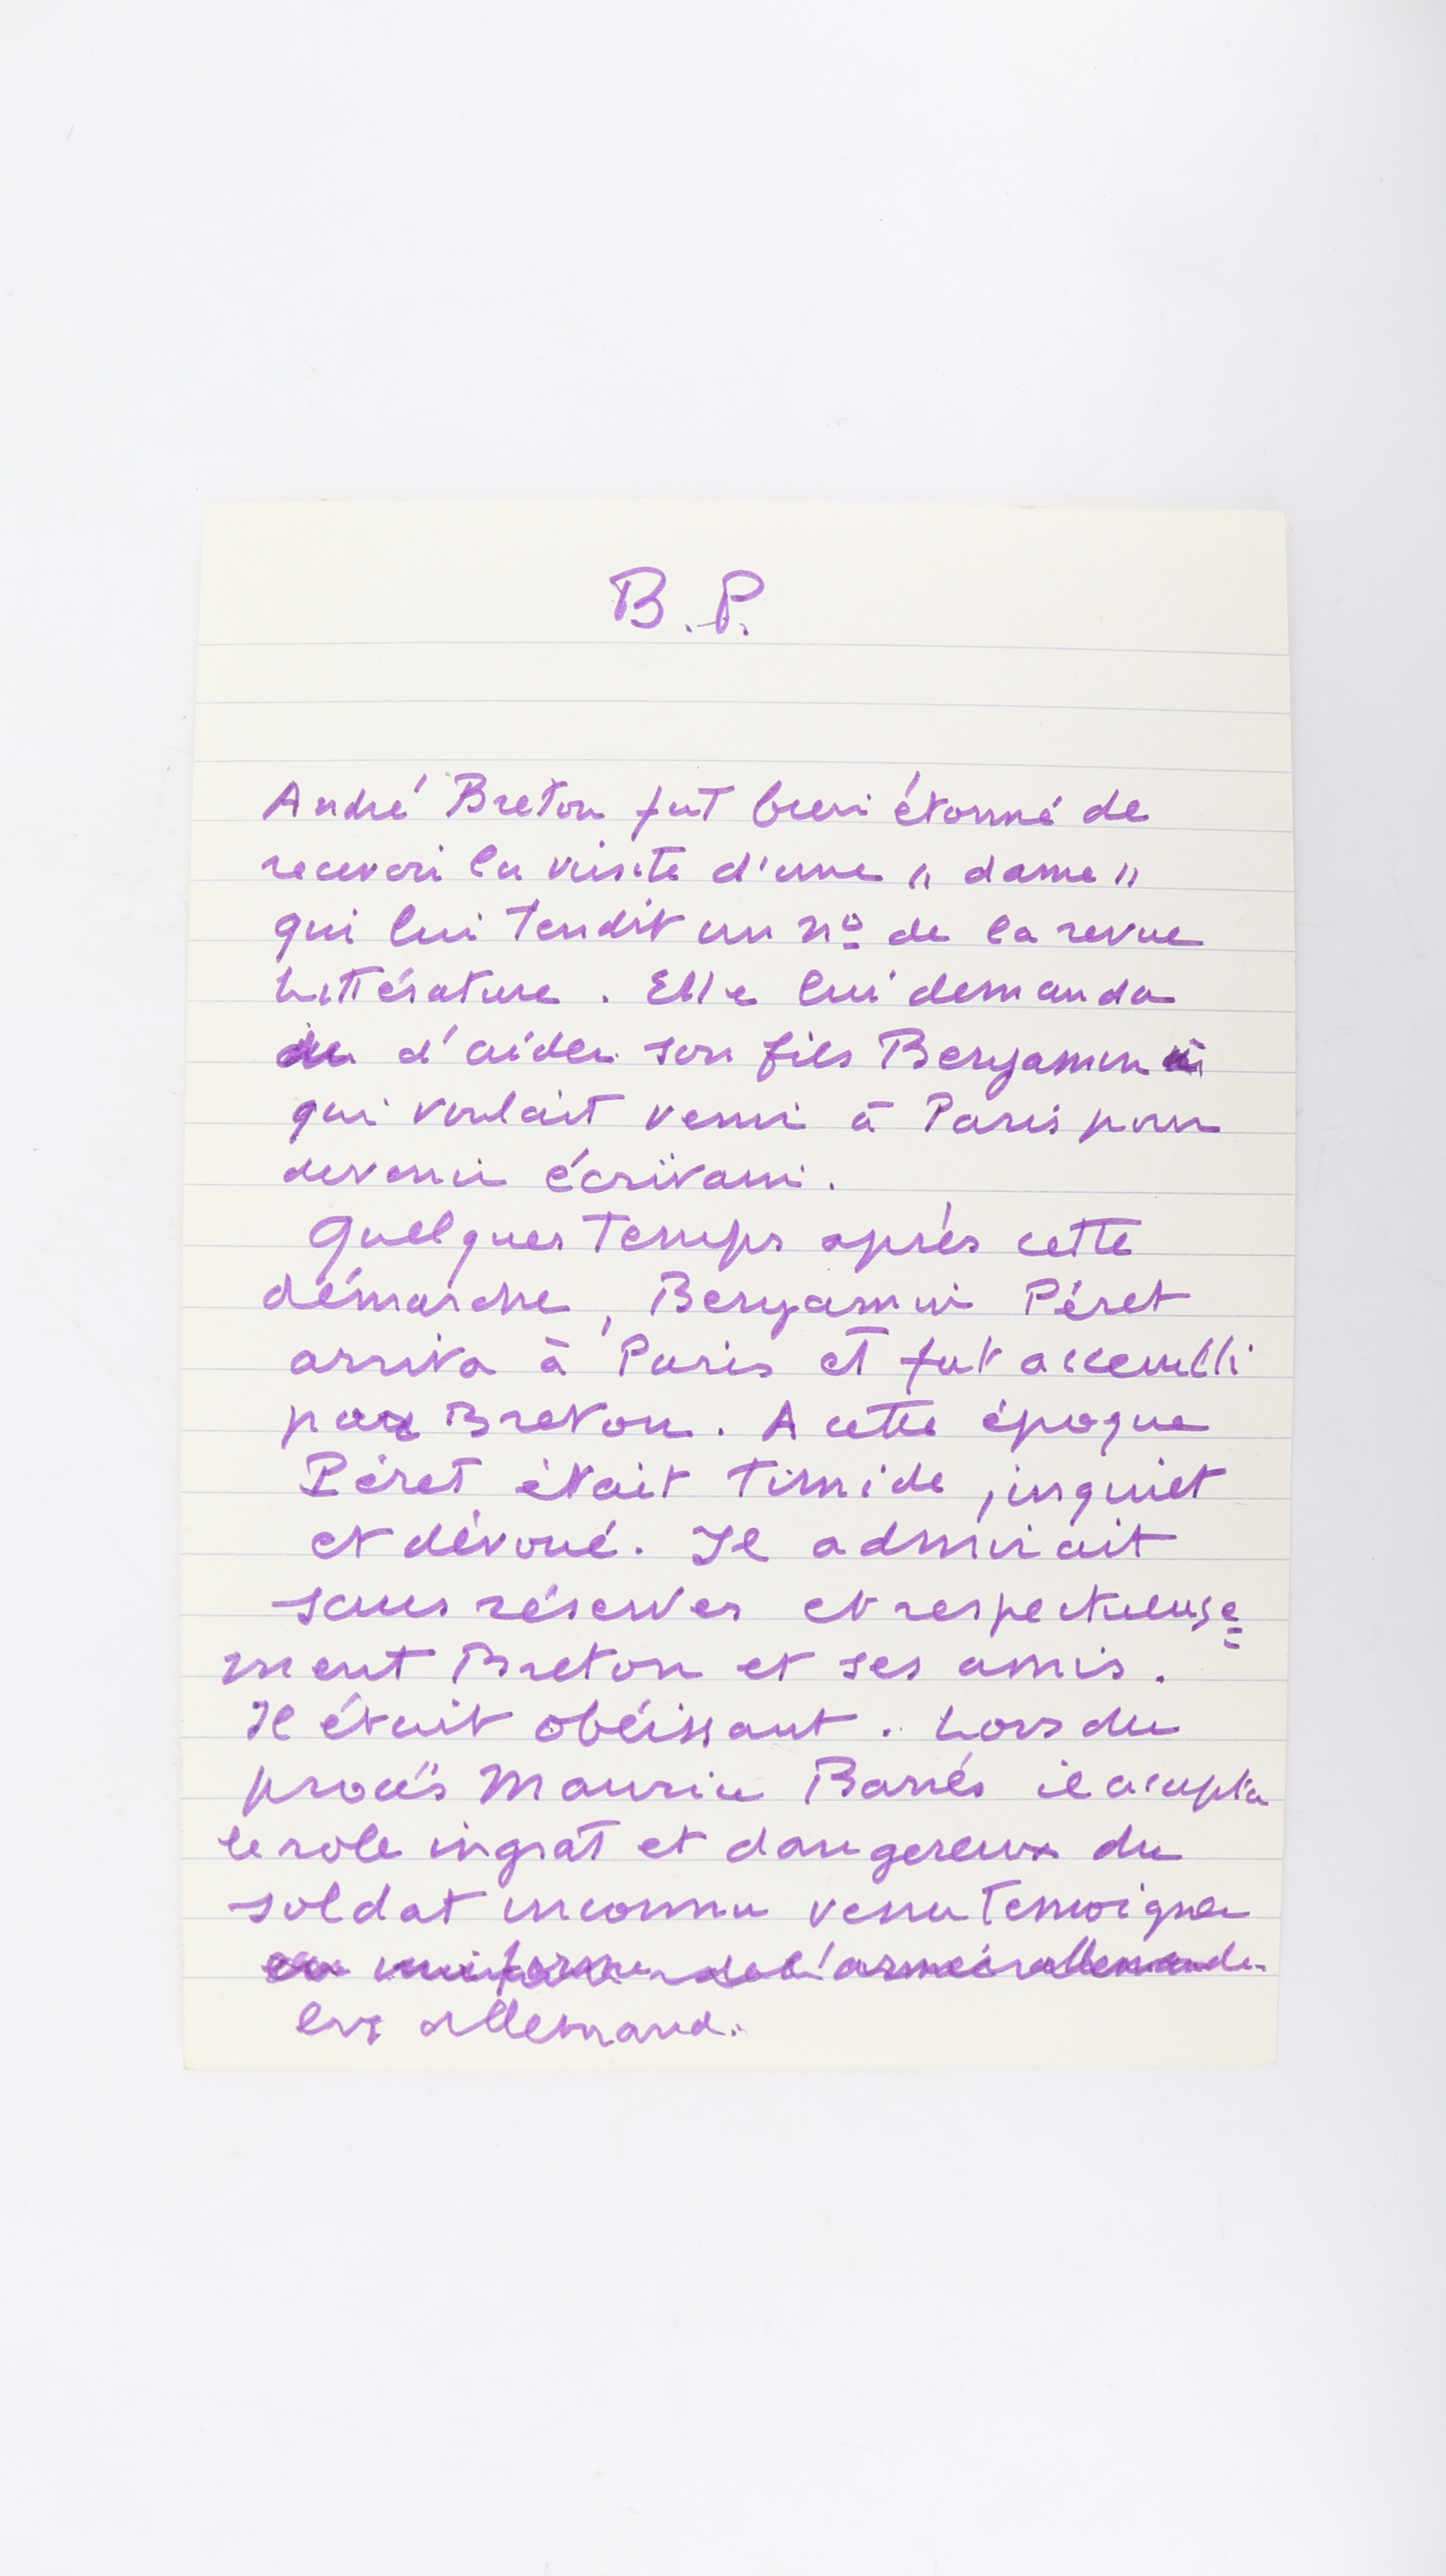 B.P.
André Breton fut bien étonné de
recevoir la visite d'une " dame "
qui lui tendit un nº de la revue
Littérature. Elle lui demanda
d'aider son fils Benjamin
qui voulait venir à Paris pour
devenir écrivain.
Quelques temps après cette
démarche, Benjamin Péret
arriva à Paris et fut accueilli
par Breton. A cette époque
Péret était timide, inquiet
et dévoué. Il admirait
sans réserves et respectueuse=
ment Breton et ses amis.
Il était obéissant. Lors du
procès Maurice Barrès il accepta
le role ingrat et dangereux du
soldat inconnu venu temoigner
en uniforme de l'armée allemande
en allemand.